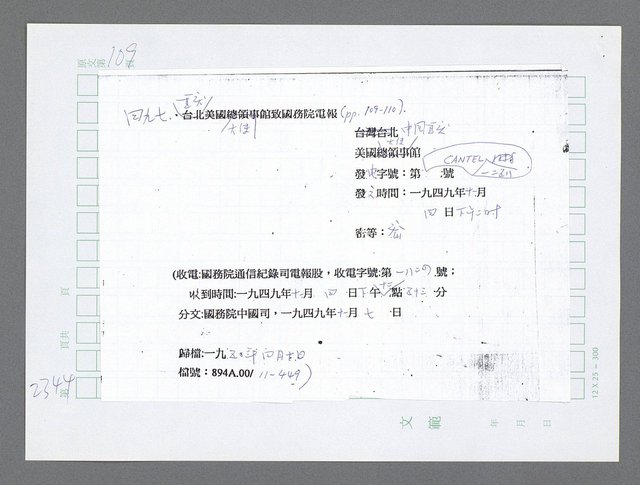 原文第109頁
四九七、台北美國總領事館致國務院電報(pp. 109-110).
重慶
大使
台灣台北 中國重慶
美國總領事館
大使
CANTEL
發電字號：第 號
發文時間：一九四九年十一月
四 日下午二時
密等：密
(收電:國務院通信紀錄司電報股，收電字號:第一八二〇號；
收到時間:一九四九年十一月 四 日下午 十二點五十三分
分文:國務院中國司，一九四九年十一月 七 日
歸檔:一九五〇年四月七日
檔號：894A.00/ 11-449)
頁
頁共
2344
第
12 X 25 = 300
文 範
年 月 日